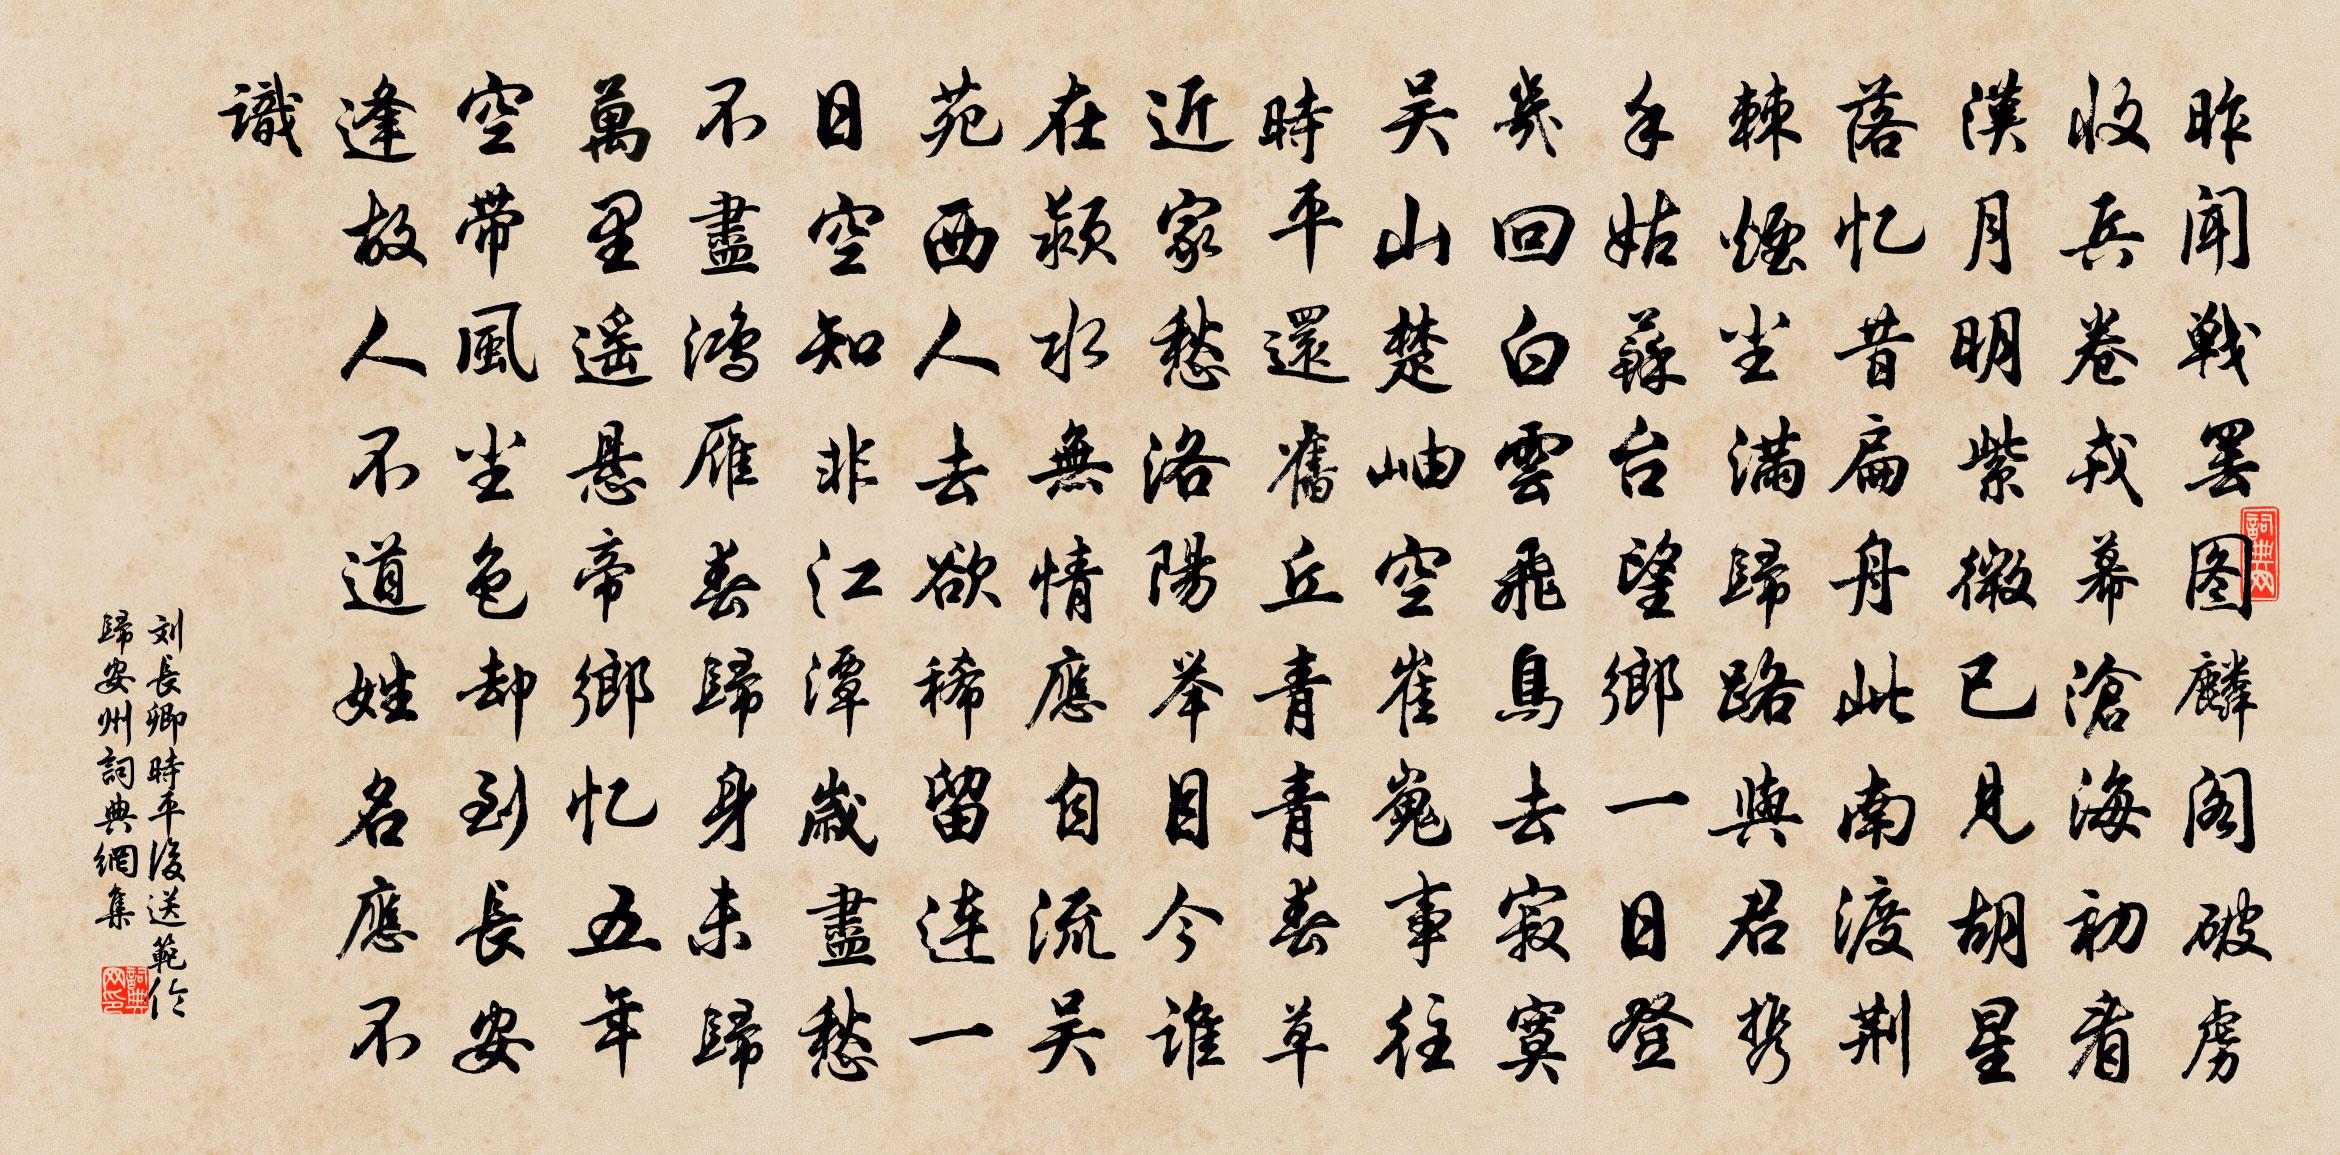 昨闻戦罢图麟阁破虏
收兵卷戎幕滄海初看
漢月明紫微已見胡星
落忆昔扁舟此南渡荆
棘煙尘满歸路與君携
手姑蘇台望鄉一日登
幾回白雲飛鳥去寂寞
吴山楚岫空崔嵬事往
時平還舊丘青青春草
近家愁洛陽举目今谁
在颍水無情應自流吴
苑西人去欲稀留连一
日空知非江潭歲盡愁
不盡鸿雁春歸身未歸
萬里遥悬帝鄉忆五年
空带風尘色却到長安
逢故人不道姓名應不
識
刘長卿時平後送範伦
歸安州詞典網集
詞典网
詞典网印